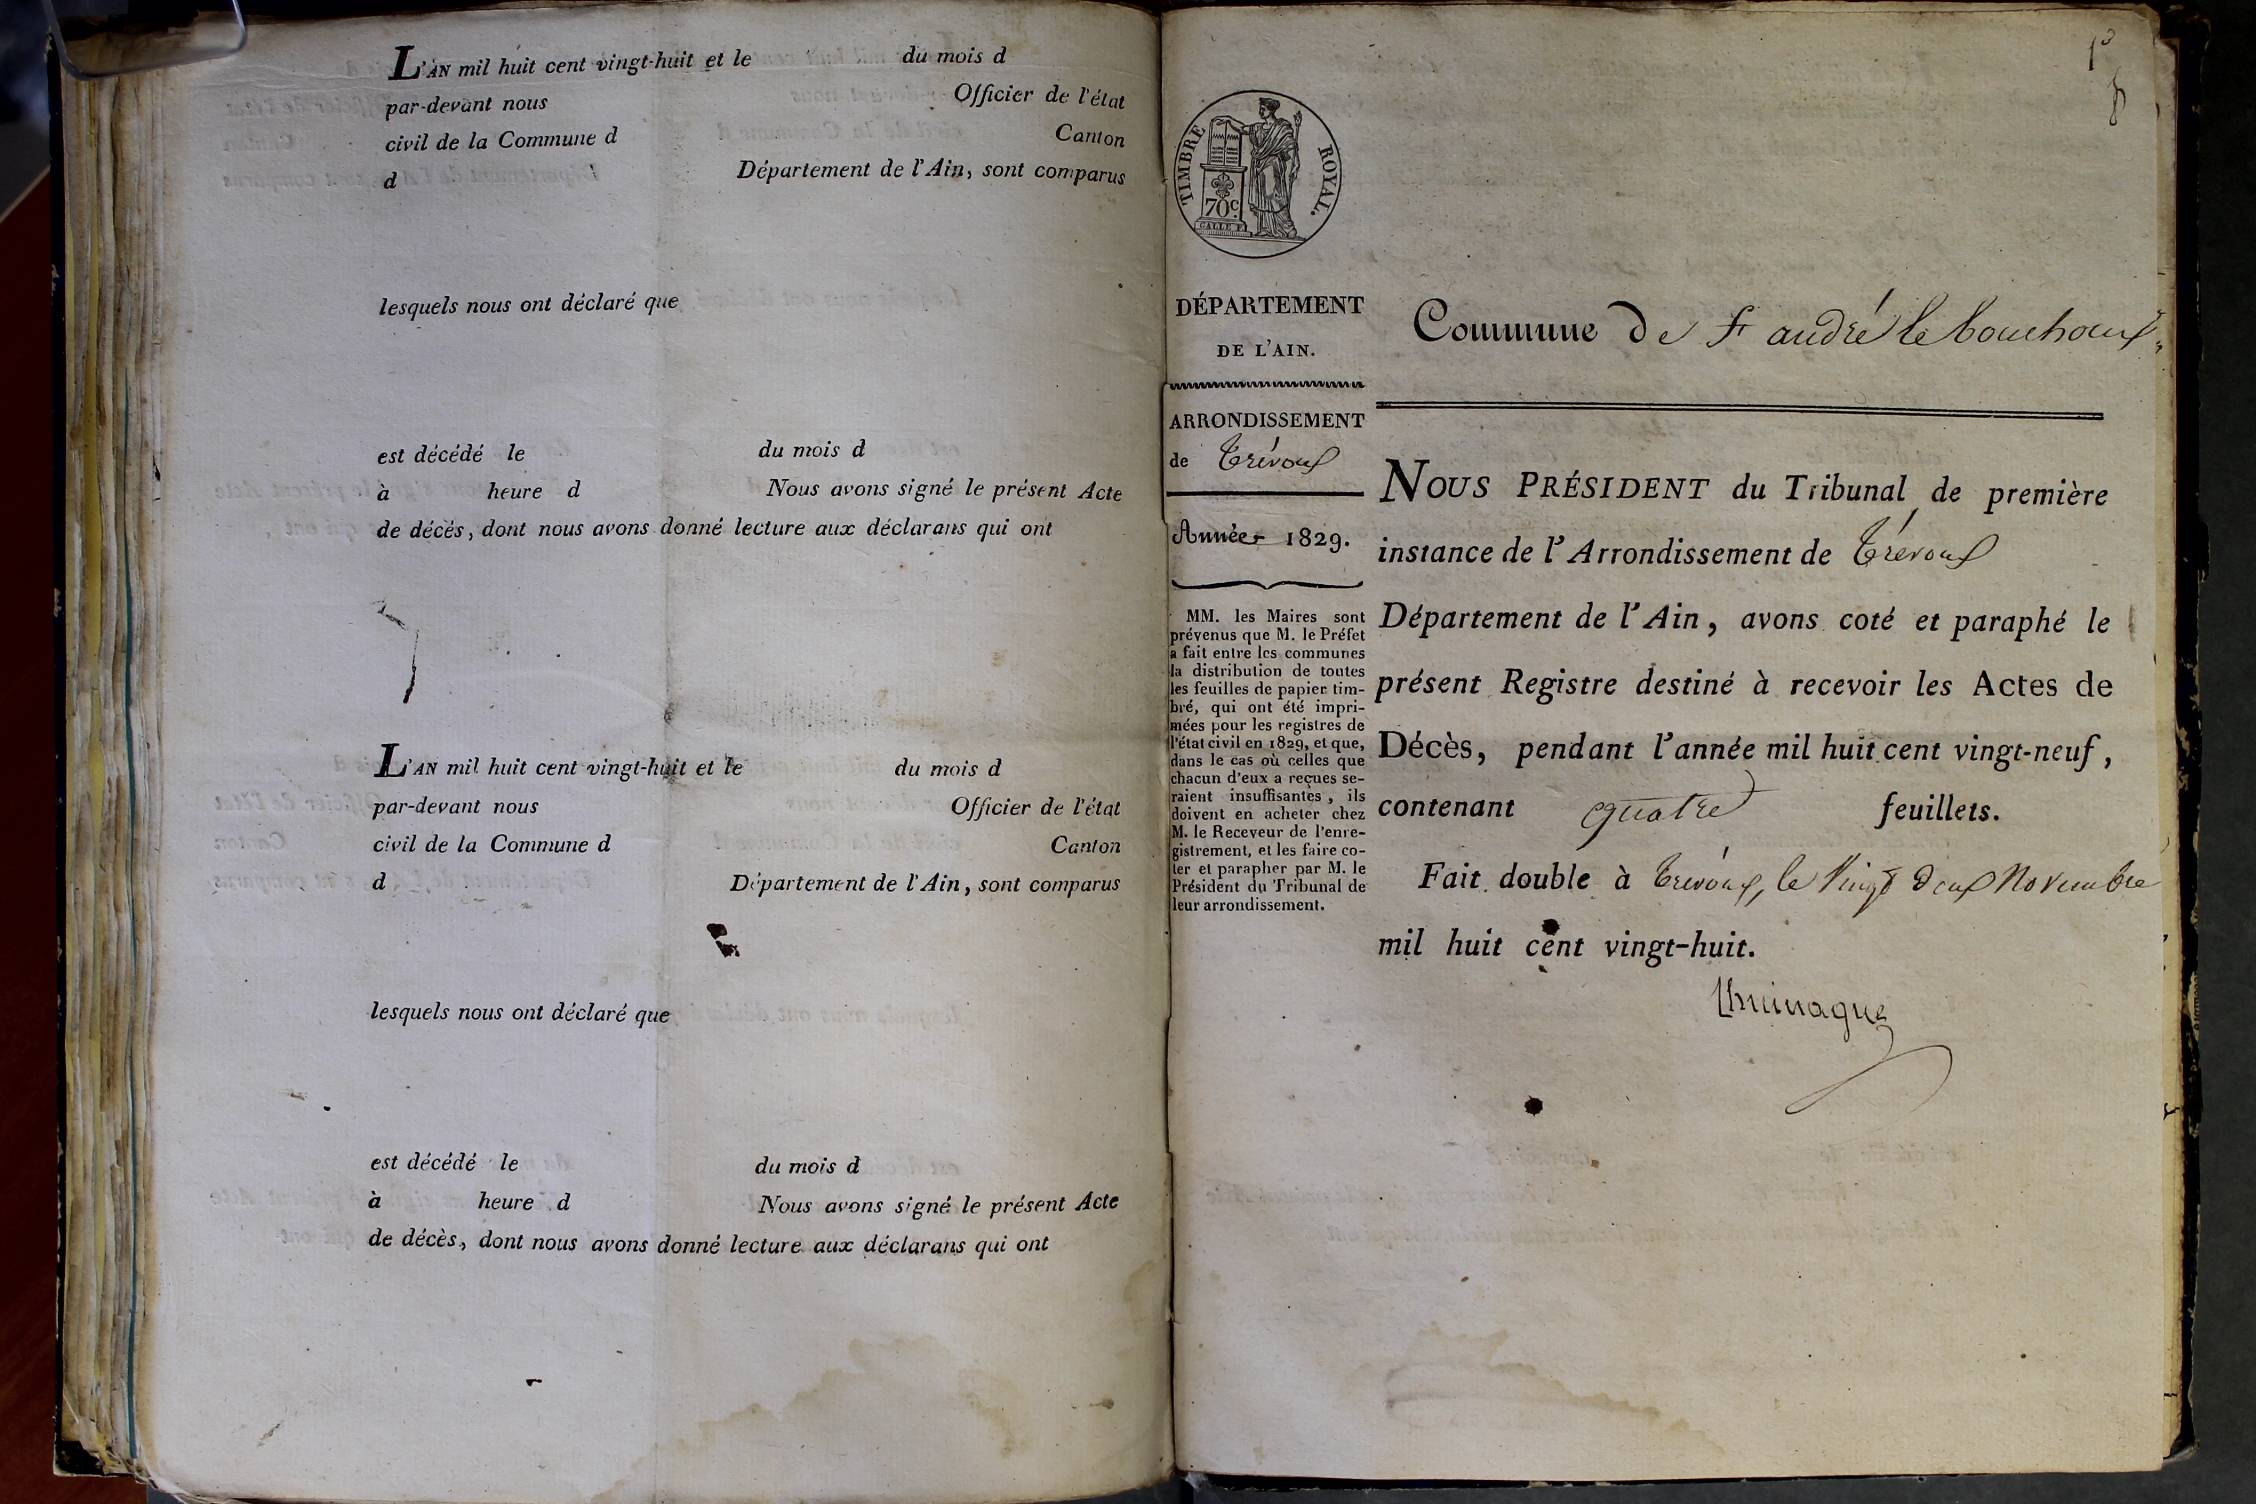 L'AN mil huit cent vingt-huit et le du mois d
par-devant nous Officier de l'état
civil de la Commune d Canton
d Département de l'Ain, sont comparus
lesquels nous ont déclaré que
est décédé le du mois d
à heure d Nous avons signé le présent Acte
de décés, dont nous avons donné lecture aux déclarans qui ont
L'AN mil huit cent vingt-huit et le du mois d
par-devant nous Officier de l'état
civil de la Commune d Canton
d Département de l'Ain, sont comparus
lesquels nous ont déclaré que
est décédé le du mois d
à heure d Nous avons signé le présent Acte
de décès, dont nous avons donné lecture aux déclarans qui ont
TIMBRE ROYAL.
70 c.
DÉPARTEMENT
DE L'AIN.
ARRONDISSEMENT
de Trévoux
Année 1829.
MM. les Maires sont
prévenus que M. le Préfet
a fait entre les communes
la distribution de toutes
les feuilles de papier tim-
bré, qui ont été impri-
mées pour les registres de
l'état civil en 1829, et que,
dans le cas où celles que
chacun d'eux a reçues se-
raient insuffisantes, ils
doivent en acheter chez
M. le Receveur de l'enre-
gistrement, et les faire co-
ter et parapher par M. le
Président du Tribunal de
leur arrondissement.
Commune de St andré le bouchoux
NOUS PRÉSIDENT du Tribunal de première
instance de l'Arrondissement de Trévoux
Département de l'Ain, avons coté et paraphé le
présent Registre destiné à recevoir les Actes de
Décès, pendant l'année mil huit cent vingt-neuf,
contenant quatre feuillets.
Fait double à Trévoux, le Vingt deux Novembre
mil huit cent vingt-huit.